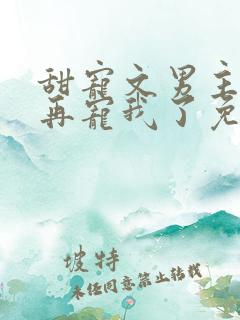 甜寵文男主
再寵我了免
坡特
未经同意禁止转载